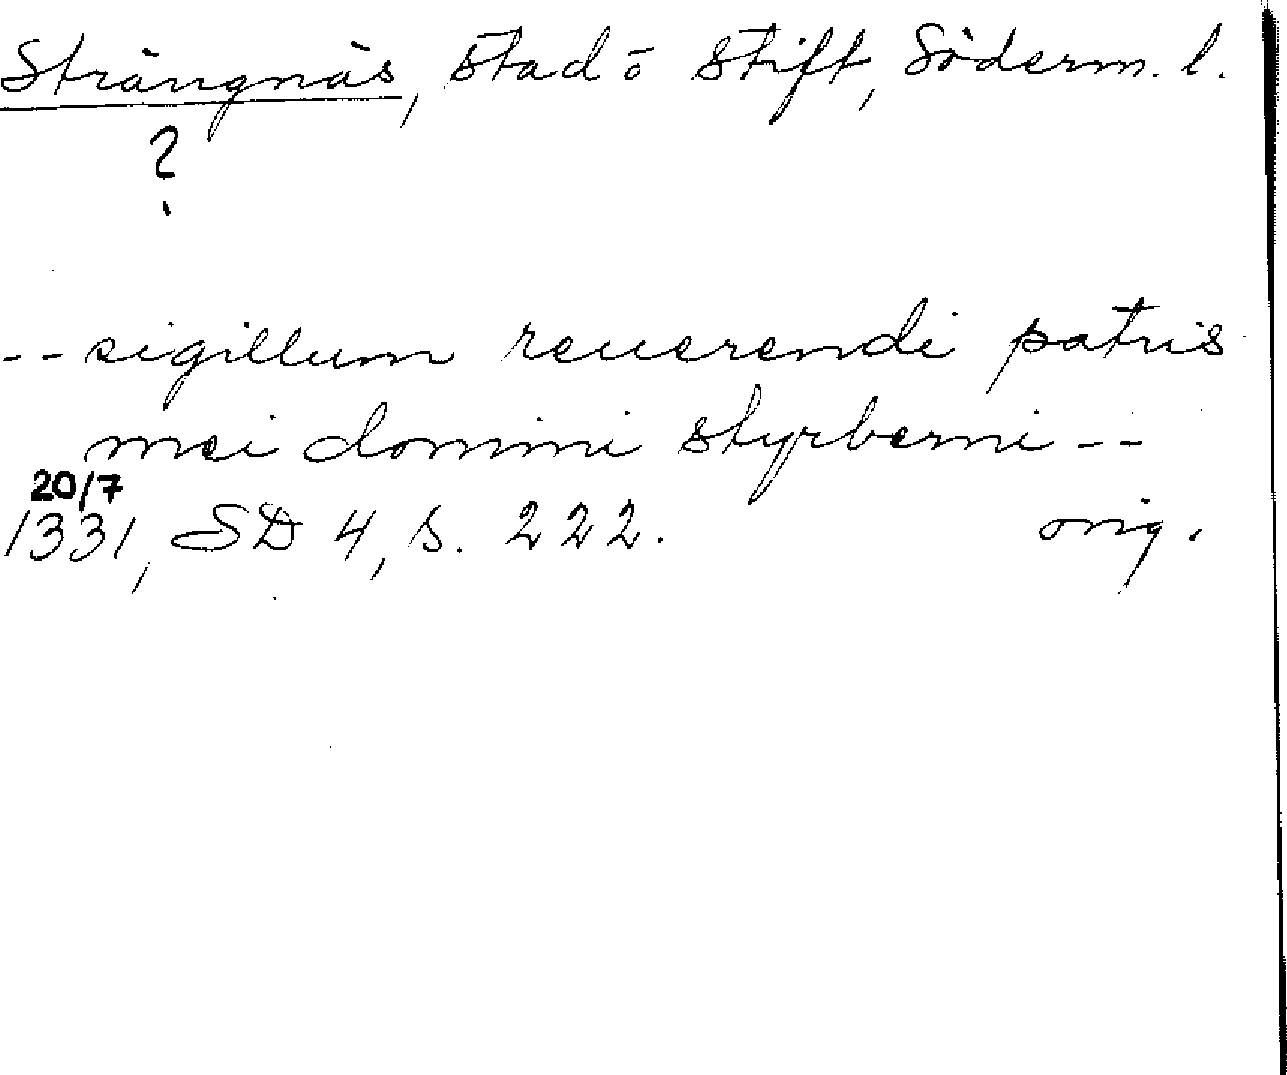 Strängnäs, stad o stift, Söderm. l.
?
-- sigillum reuerendi patris
mei domini styrberni --
20/7
1331, SD 4, s. 222. orig.